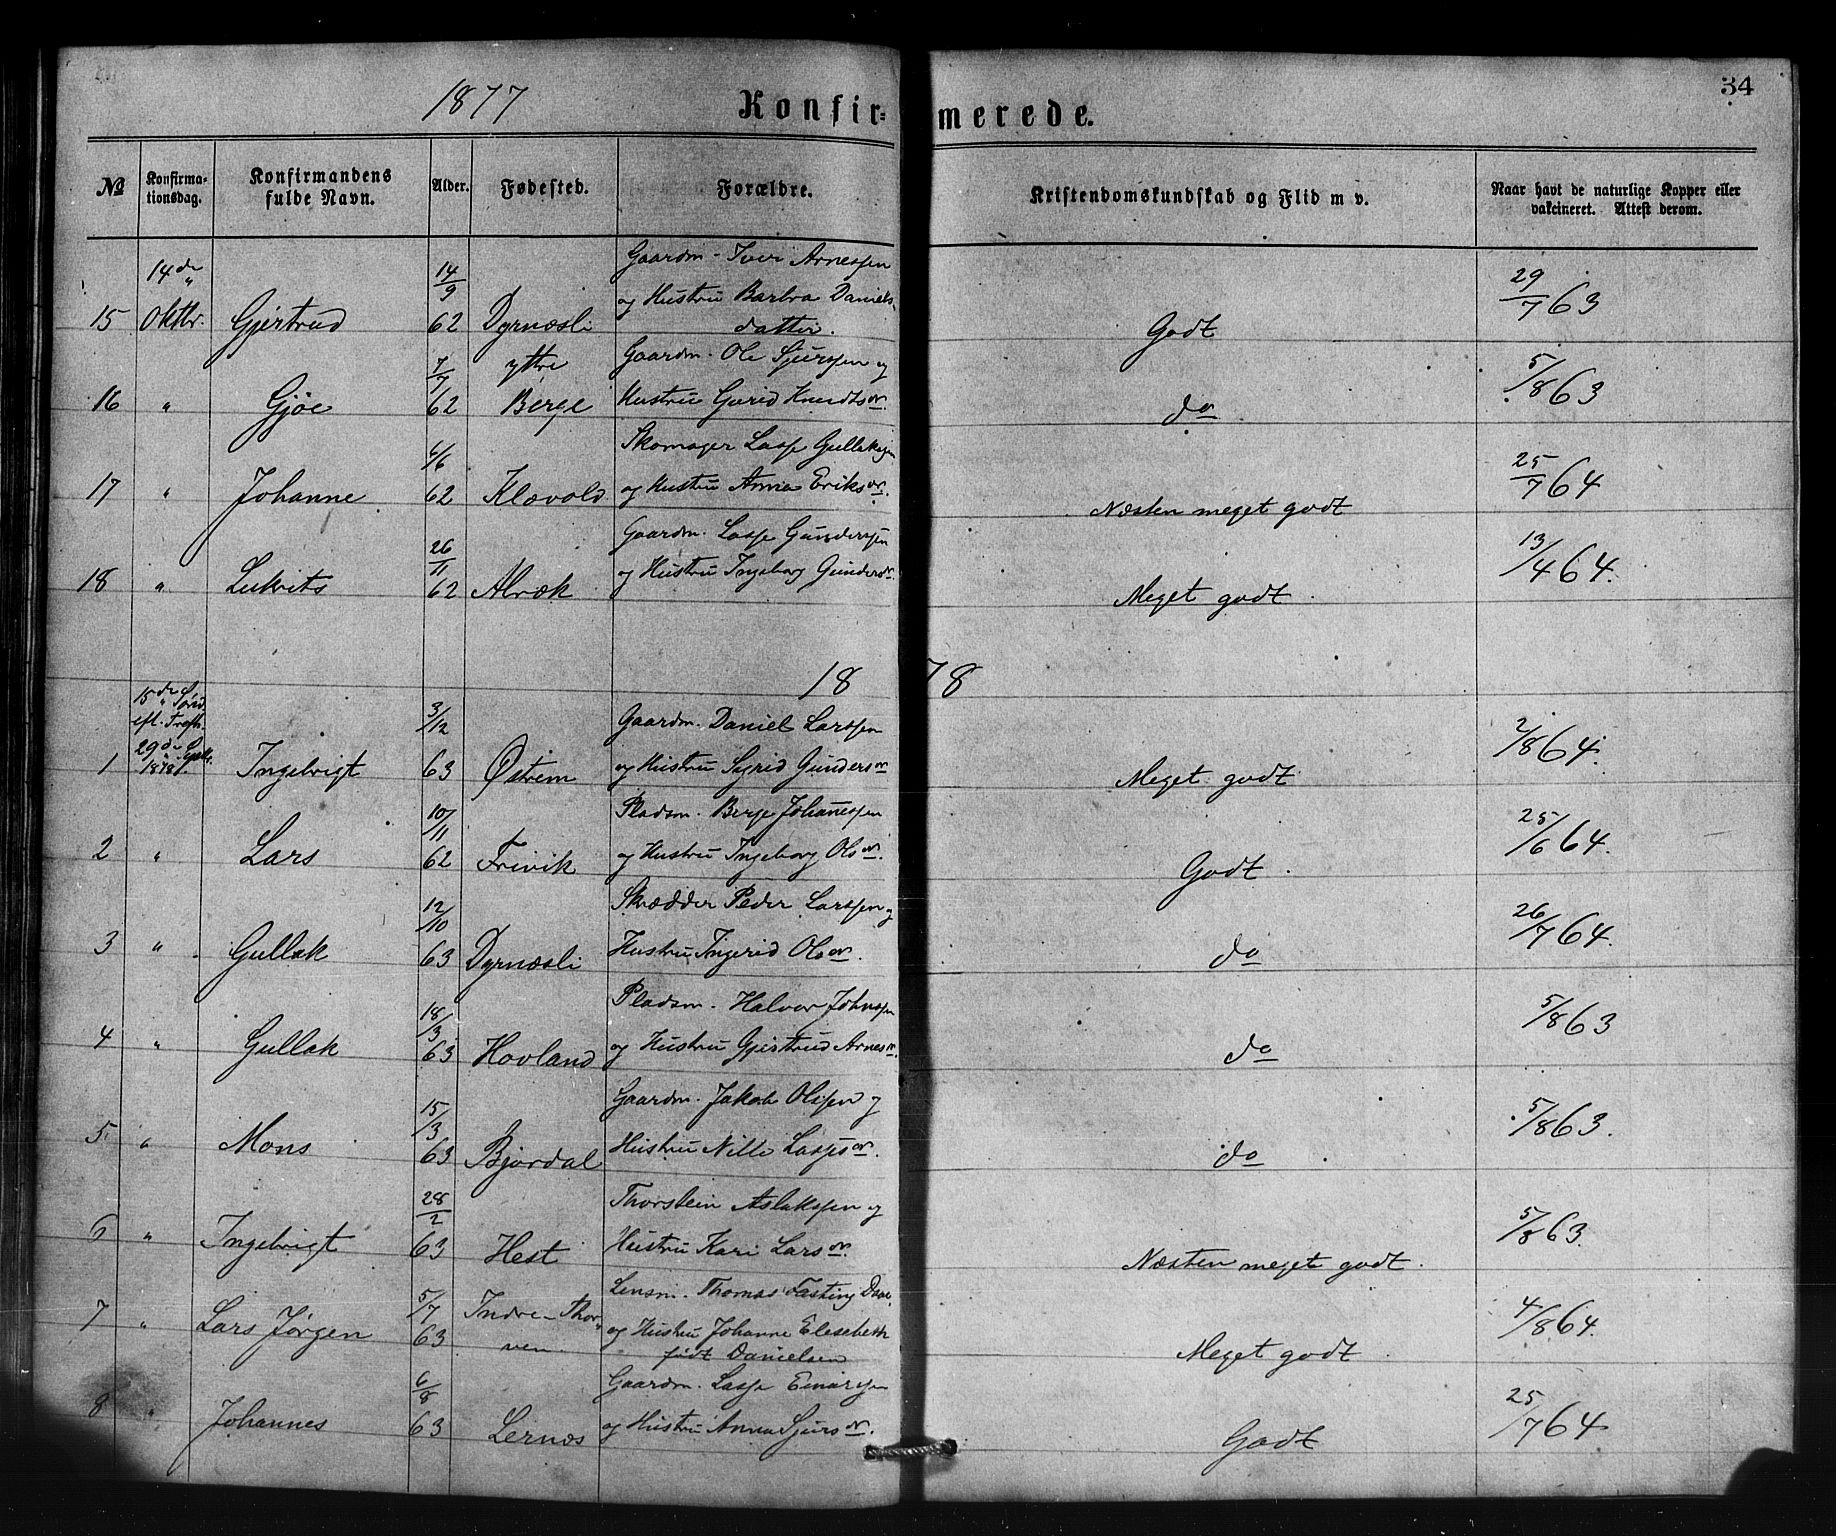 34
1877 Konfir= merede.
№ Konfirma-tionsdag. Konfirmandens fulde Navn. Alder. Fødested. Forældre. Kristendomskundskab og Flid m v. Naar havt de naturlige Kopper eller vakcineret. Attest derom.
14 de 14/9 Gaardm. Iver Arnessen 29/7 63
og Hustru Barbra Daniels
15 Oktbr. Gjertrud 62 Dyrnæsli datter. Godt
7/7 ytre Gaardm. Ole Sjurssen og 5/8 63
16 " Gjøe 62 Berge Hustru Gurid Knudtsdr. do
6/6 Skomager Lasse Gullaksen 25/7 64
17 " Johanne 62 Klævold og Hustru Anna Eriksdr. Næsten meget godt
26/11 Gaardm. Lasse Gundersen 13/4 64.
18 " 62 Alræk og Hustru Ingeborg Gundersdr. Meget godt.
1878
15 de Sønd. eft. Trefh. 3/12 Gaardm. Daniel Larssen 2/8 64.
1 29 de Septbr. 1878. Ingebrigt 63 Østrem og Hustru Sygrid Gundersdr Meget godt.
10/11 Pladsm. Berge Johanessen 25/6 64.
2 " Lars 62 Frivik og Hustru Ingeborg Olsdr. Godt.
12/10 Skrædder Peder Larssen og 26/7 64.
3 " Gullak 63 Dyrnæsli Hustru Ingerid Olsdr. do
18/3 Pladsm. Halvor Johnssen 5/8 63
4 " Gullak 63 Hovland og Hustru Gjertrud Arnesdr. do
15/3 Gaardm. Jakob Olssen og 5/8 63.
5 " Mons 63 Bjordal Hustru Nille Lassesdr. do
28/2 Thorstein Aslakssen og 5/8 63.
6 " Ingebrigt 63 Hest Hustru Kari Larsdr. Næsten meget godt.
5/7 Indre-Thor- Lensm. Thomas Fasting Daae 4/8 64.
7 " Lars Jørgen 63 ven. og Hustru Johanne Elesebeth
født Danielsen Meget godt.
6/8 Gaardm. Lasse Einarsen 25/7 64
8 " Johannes 63 Lernæs og Hustru Anna Sjursdr. Godt